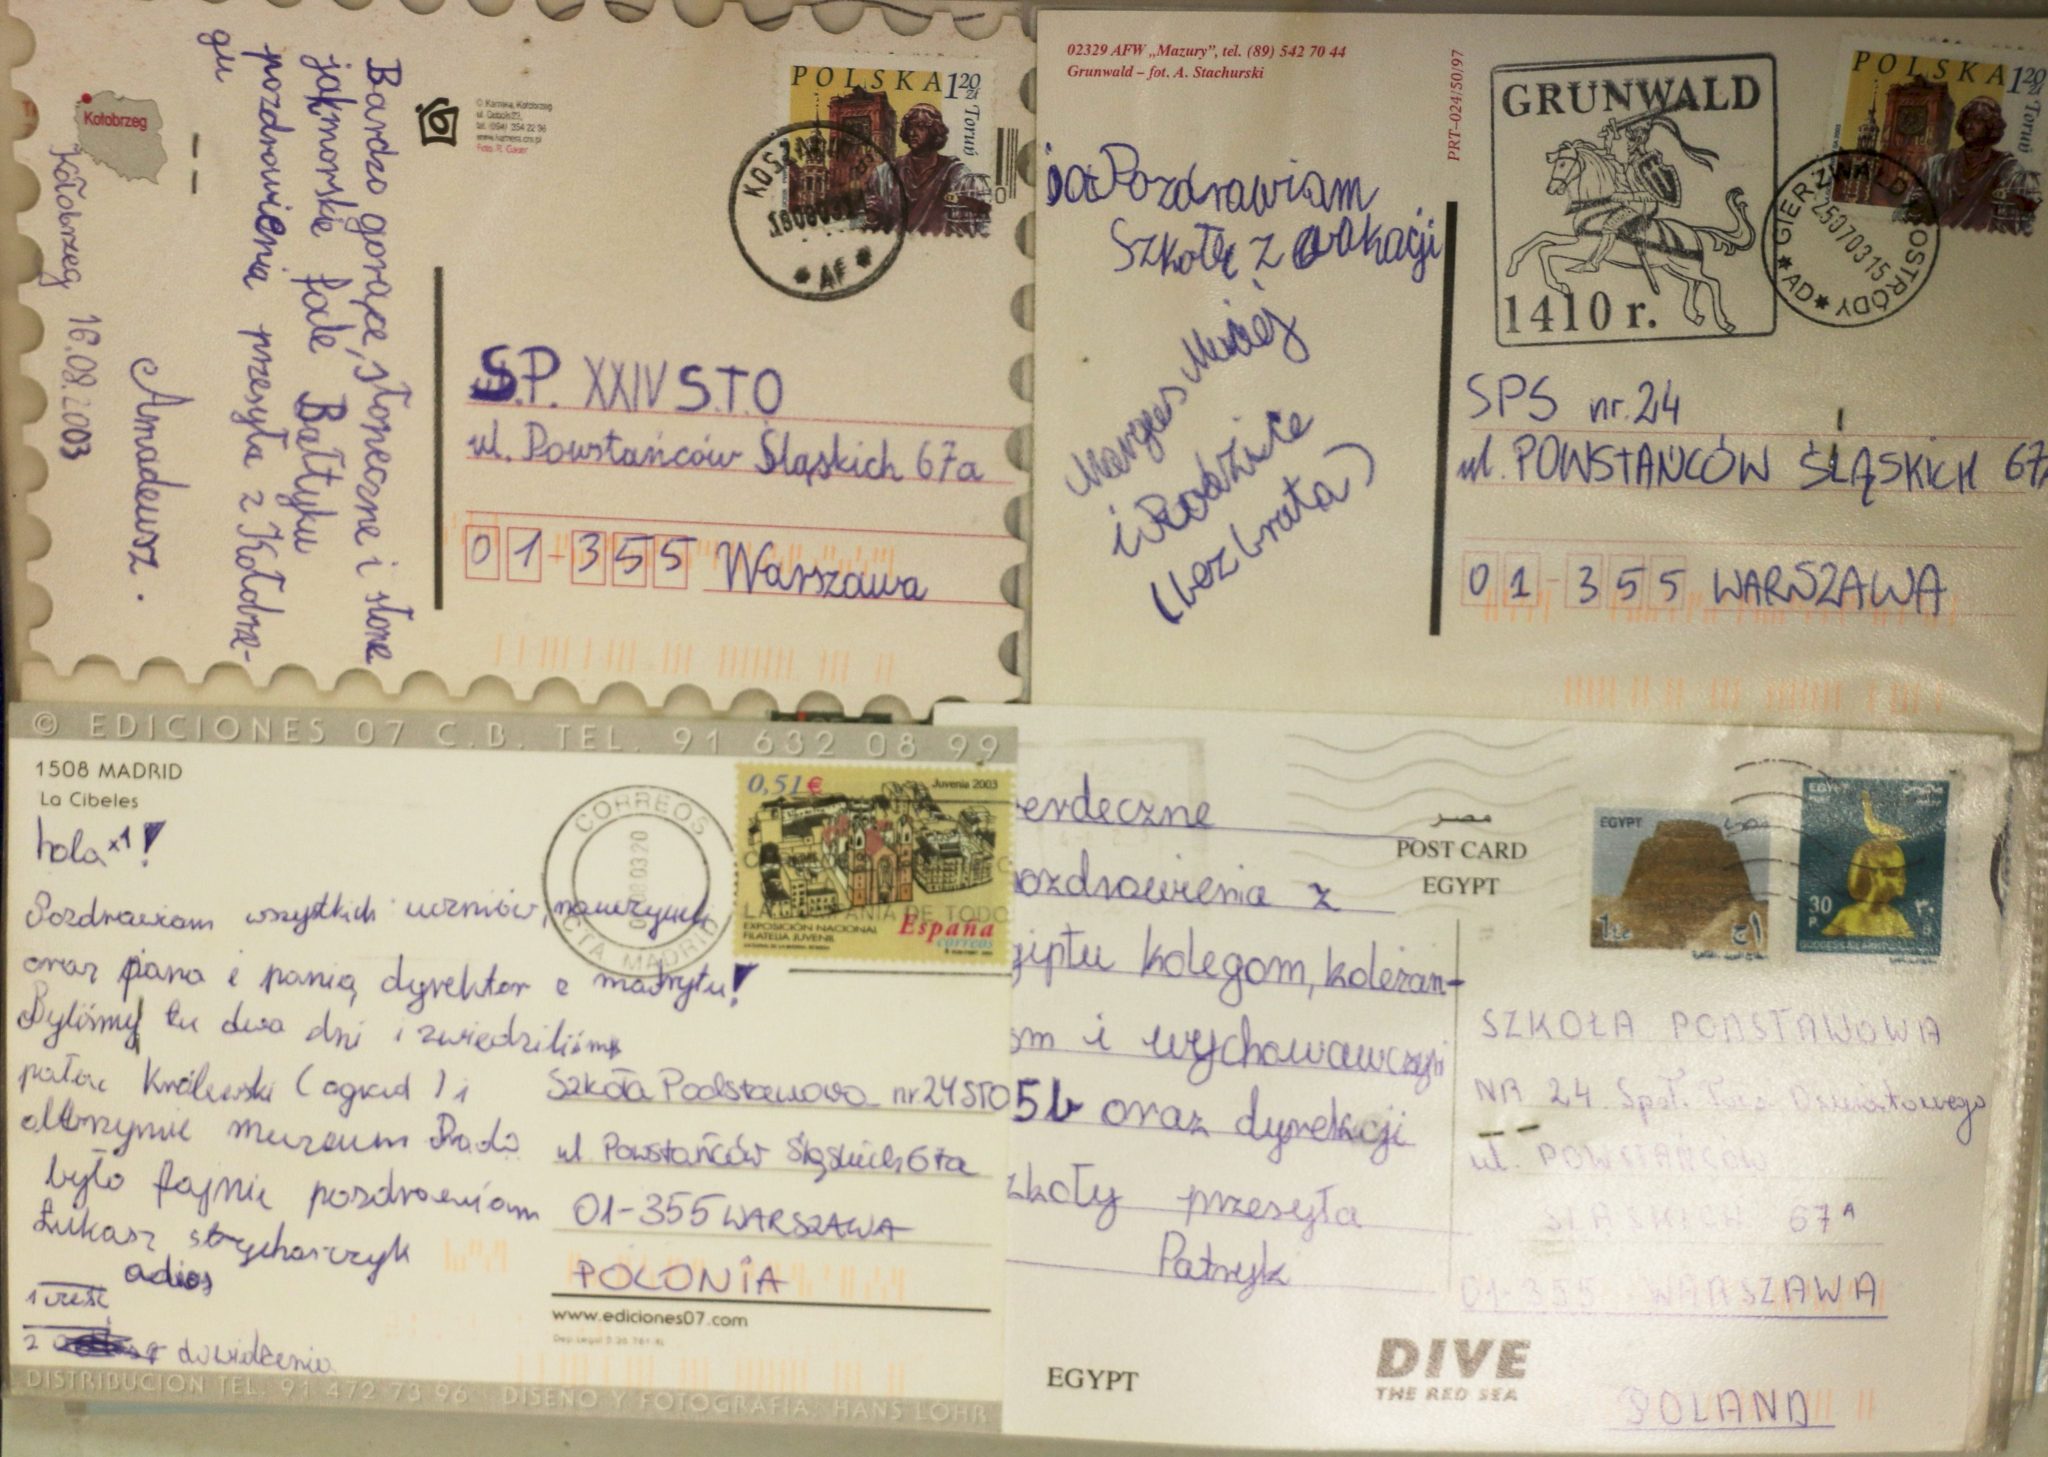 Kołobrzeg
Kołobrzeg 16.08.2003
Bardzo gorące, słoneczne i słone
jak morskie fale Bałtyku
pozdrowienia przesyła z Kołobrze-
gu
Amadeusz.
© Kamera, Kołobrzeg
tel. (094) 354 22 96
POLSKA 120 zł
Toruń
AF
S.P. XXIV S.T.O
ul. Powstańców Śląskich 67a
01-355 Warszawa
02329 AFW „Mazury”, tel. (89) 542 70 44
Grunwald – fot. A. Stachurski
PRT–024/S0/97
GRUNWALD
1410 r.
POLSKA 120 zł
Toruń
GIERZWAŁD OSTRÓDY
25070315
AD
Pozdrawiam
Szkołę z wakacji
Maciej
i Rodzice
(bez brata)
SPS nr. 24
ul. POWSTAŃCÓW ŚLĄSKICH 67A
01-355 WARSZAWA
© EDICIONES 07 C.B. TEL. 91 632 08 99
1508 MADRID
La Cibeles
hola x1!
Pozdrawiam wszystkich uczniów,
oraz pana i panią dyrektor z madrytu!
Byliśmy tu dwa dni i zwiedziliśmy
pałac Królewski (ogród) i
olbrzymie muzeum Prado
było fajnie pozdrawiam
Łukasz strycharczyk
adios
1 cześć
2 dowidzenia
CORREOS
MADRID
0,51€
Juvenia 2003
EXPOSICIÓN NACIONAL
FILATELIA JUVENIL
España
correos
Szkoła Podstawowa nr 24 STO
ul Powstańców Śląskich 67a
01-355 WARSZAWA
POLONIA
www.ediciones07.com
DISTRIBUCION TEL. 91 472 73 96 DISEÑO Y FOTOGRAFIA: HANS LÖHR
erdeczne
ozdrowienia z
giptu kolegom, koleżan-
om i wychowawczyni
5b oraz dyrekcji
zkoły przesyła
Patryk
مصر
POST CARD
EGYPT
EGYPT
EGYPT
30
SZKOŁA PODSTAWOWA
NR 24 Społ. Tow. Oświatowego
ul. POWSTAŃCÓW
ŚLĄSKICH 67A
01-355 WARSZAWA
POLAND
EGYPT
DIVE
THE RED SEA